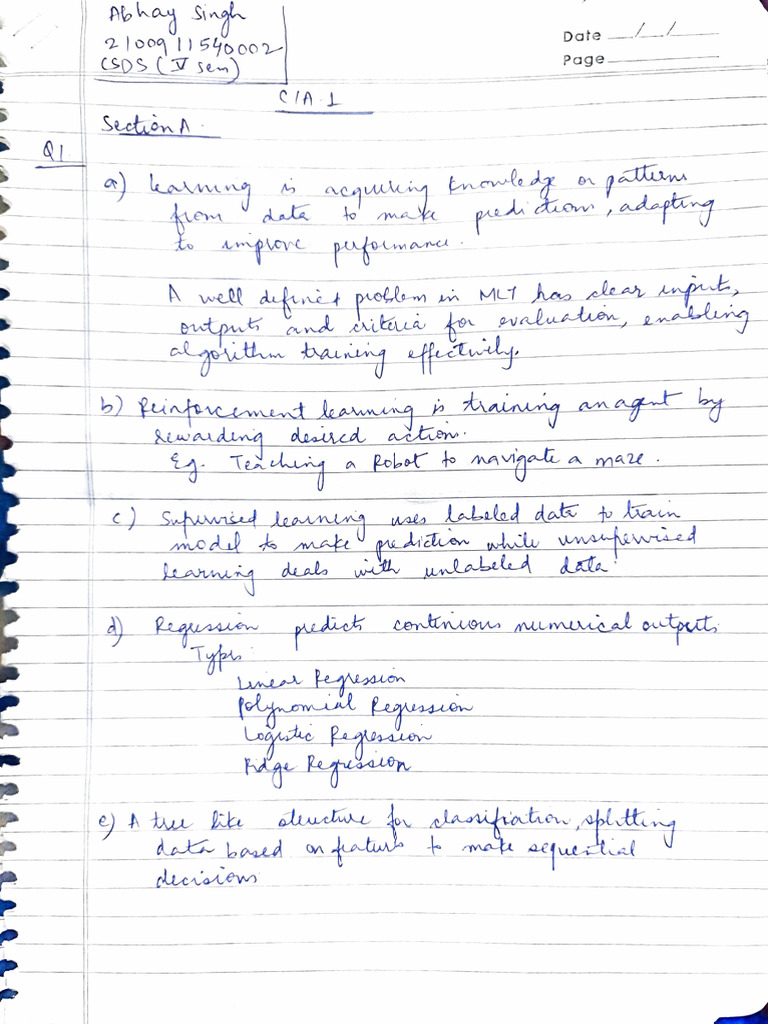 Abhay Singh
2100911540002
CSDS (V sem)
Date __/__/__
Page
C/A.1
Section A.
Q1
a) Learning is acquiring knowledge or patterns
from data to make predictions, adapting
to improve performance.
A well defined problem in MLT has clear inputs,
outputs and criteria for evaluation, enabling
algorithm training effectively.
b) Reinforcement learning is training an agent by
rewarding desired action.
Eg. Teaching a Robot to navigate a maze.
c) Supervised learning uses labeled data to train
model to make prediction while unsupervised
learning deals with unlabeled data.
d) Regression predicts continious numerical outputs.
Types:
Linear Regression
Polynomial Regression
Logistic Regression
Ridge Regression
e) A tree like structure for classifiation, splitting
data based on features to make sequential
decisions